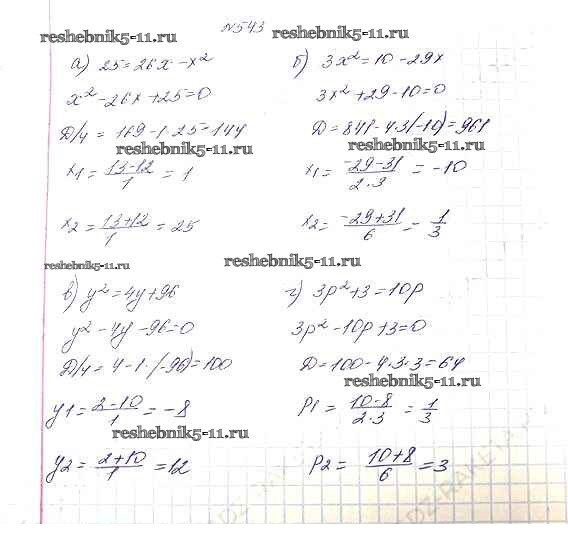 №543
reshebnik5-11.ru reshebnik5-11.ru
а) 25=26x-x²
x²-26x+25=0
D/4 = 169-1·25=144
reshebnik5-11.ru
x1=(13-12)/1 = 1
x2=(13+12)/1 = 25
reshebnik5-11.ru
б) 3x²=10-29x
3x²+29-10=0
D=841-4·3(-10)=961
reshebnik5-11.ru
x1=(-29-31)/(2·3) = -10
x2=(-29+31)/6 = 1/3
reshebnik5-11.ru
в) y²=4y+96
y²-4y-96=0
D/4=4-1·(-96)=100
y1=(2-10)/1 = -8
reshebnik5-11.ru
y2=(2+10)/1 = 12
г) 3p²+3=10p
3p²-10p+3=0
D=100-4·3·3=64
reshebnik5-11.ru
p1=(10-8)/(2·3) = 1/3
p2=(10+8)/6 = 3